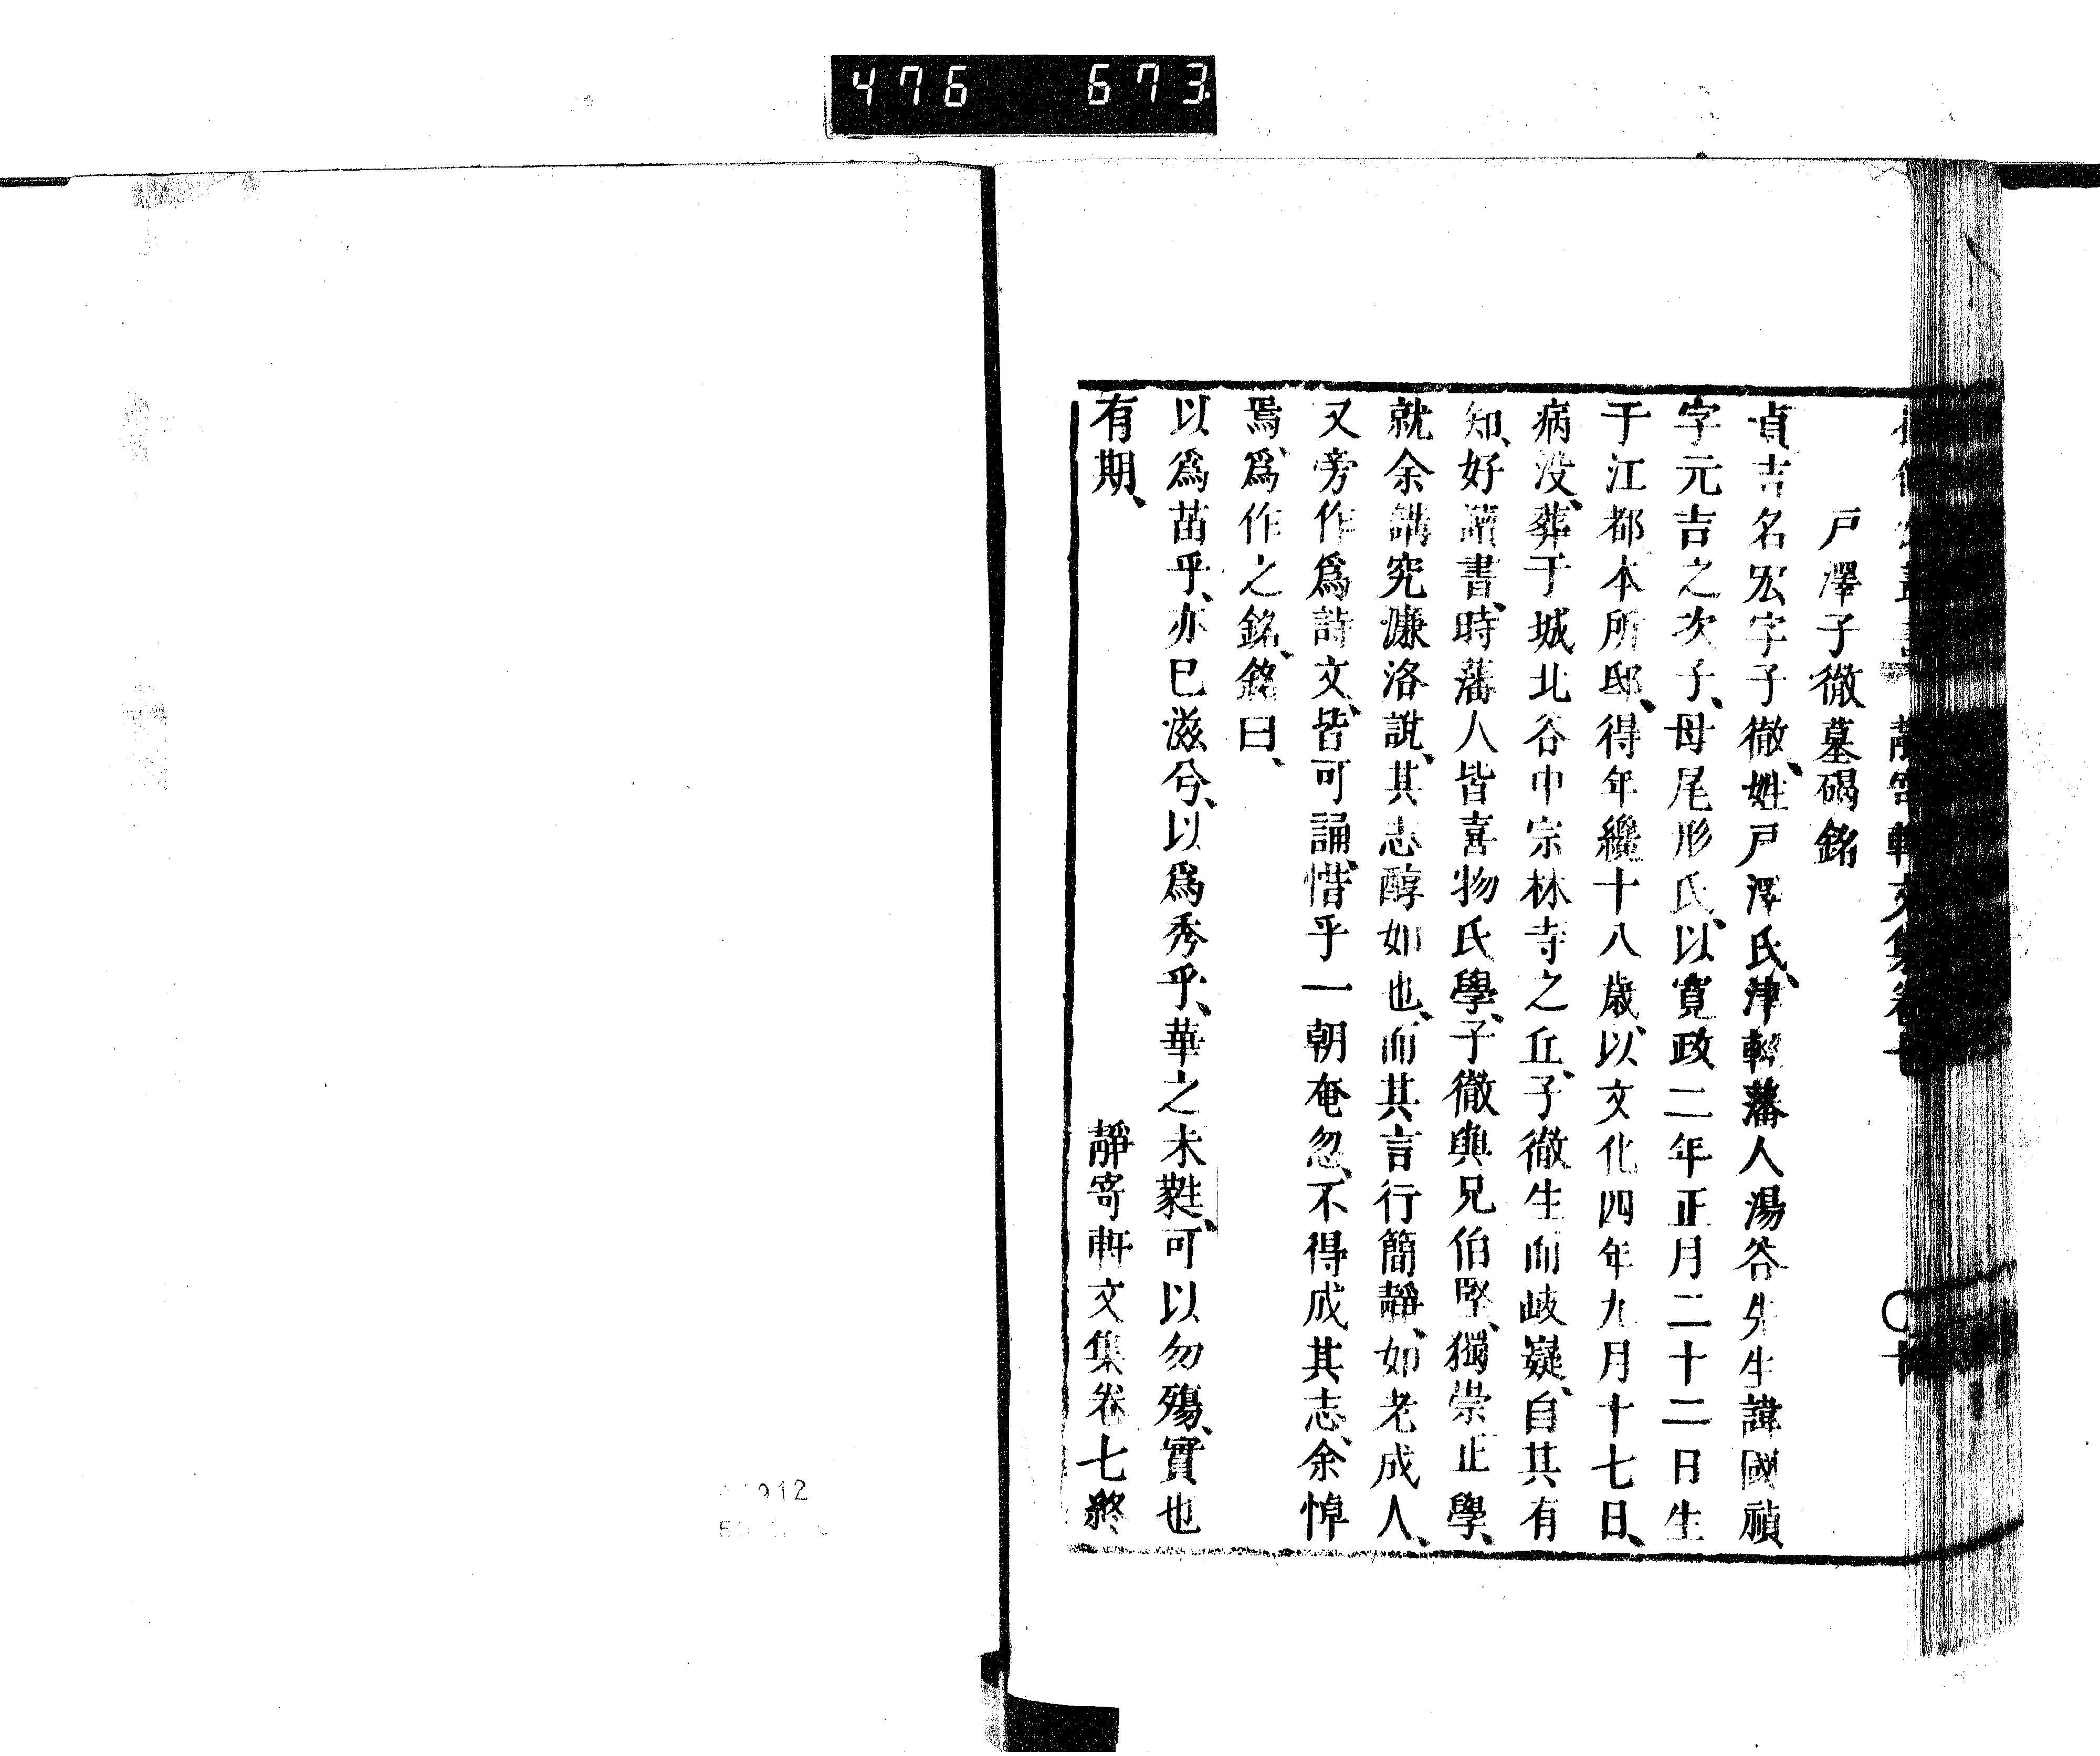 476 673
戸澤子徹墓碣銘
貞吉名宏字子徹、姓戸澤氏、津輕藩人湯谷先生諱國禎
字元吉之次子、母尾形氏、以寛政二年正月二十二日生
于江都本所邸、得年纔十八歳、以文化四年九月十七日、
病没、葬于城北谷中宗林寺之丘、子徹生而岐嶷、自其有
知、好讀書、時藩人皆喜物氏學、子徹與兄伯堅、獨崇正學、
就余講究濂洛說、其志醇如也、而其言行簡靜、如老成人、
又旁作爲詩文、皆可誦、惜乎一朝奄忽、不得成其志、余悼
焉、爲作之銘、銘曰、
以爲苗乎、亦已滋兮、以爲秀乎、華之未蕤、可以勿殤、實也
有期、
靜寄軒文集卷七終